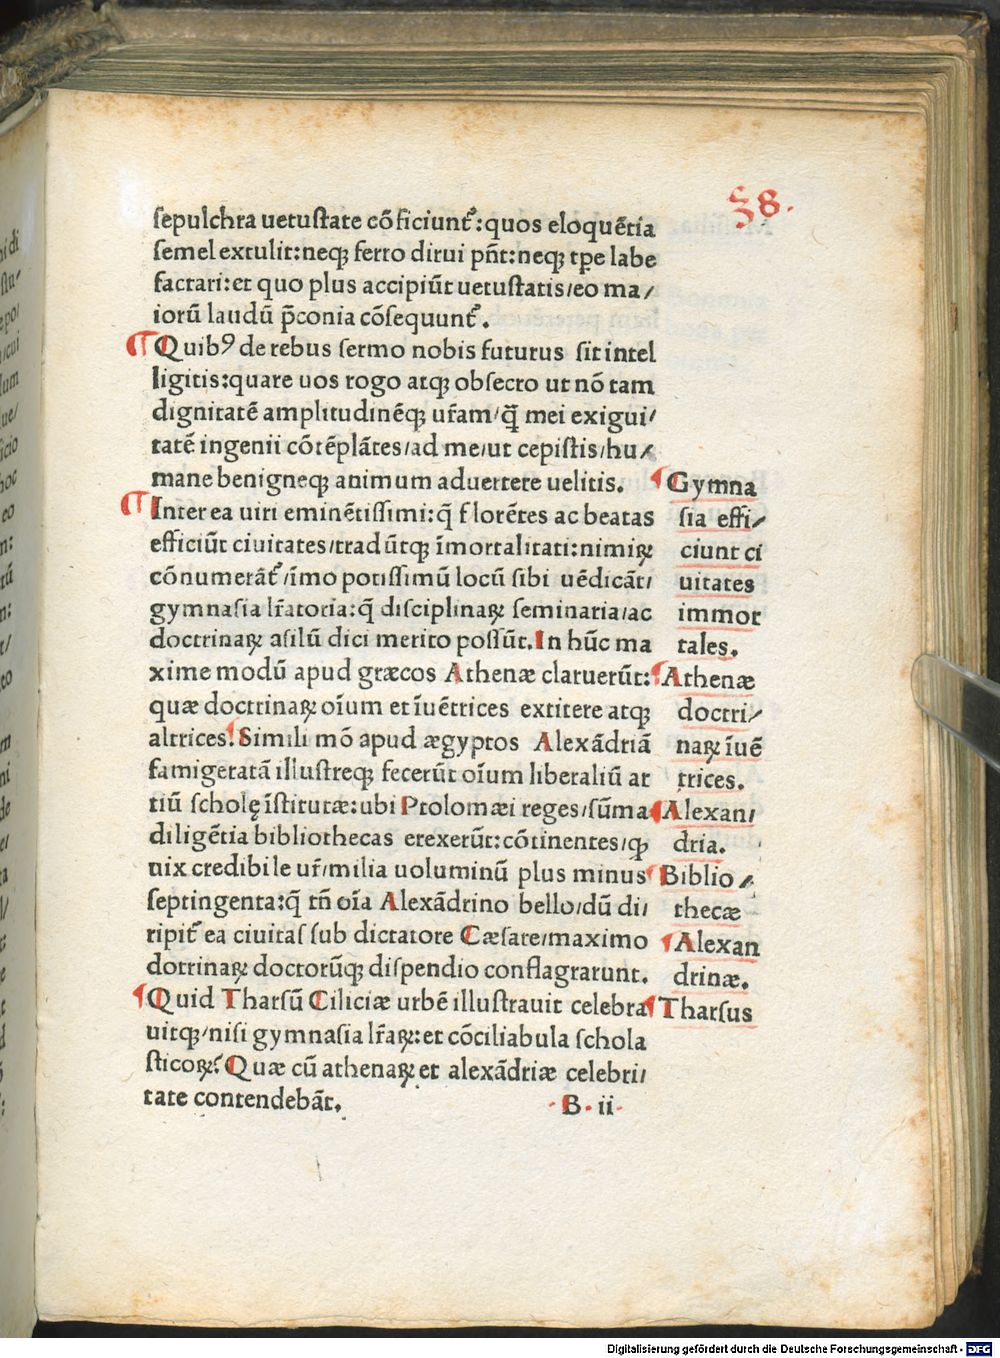 38.
sepulchra uetustate cōficiunt᷑:quos eloquētia
semel extulit:neqꝫ ferro dirui pn̄t:neqꝫ tꝑe labe
factari:et quo plus accipiūt uetustatis/eo ma/
iorū laudū p̄conia cōsequunt᷑.
¶ Quibꝰ de rebus sermo nobis futurus sit intel
ligitis:quare uos rogo atqꝫ obsecro ut nō tam
dignitatē amplitudinēqꝫ ur̄am/q̄ mei exigui/
tatē ingenii cōtēplātes/ad me/ut cepistis/hu/
mane benigneqꝫ animum aduertere uelitis.
¶ Inter ea uiri eminētissimi:q̄ florētes ac beatas
efficiūt ciuitates/tradūtqꝫ īmortalitati:nimiꝝ
cōnumerāt᷑/īmo potissimū locū sibi uēdicāt/
gymnasia lr̄atoria:q̄ disciplinaꝝ seminaria/ac
doctrinaꝝ asilū dici merito possūt.In hūc ma
xime modū apud græcos Athenæ claruerūt:
quæ doctrinaꝝ oīum et īuētrices extitere atqꝫ
altrices.¶Simili mō apud ægyptos Alexādriā
famigeratā illustreqꝫ fecerūt oīum liberaliū ar
tiū scholę īstitutæ:ubi Ptolomæi reges/sūma
diligētia bibliothecas erexerūt:cōtinentes/qꝫ
uix credibile ur̄/milia uoluminū plus minus
septingenta:q̄ tn̄ oīa Alexādrino bello/dū di/
ripit᷑ ea ciuitas sub dictatore Cæsare/maximo
dotrinaꝝ doctorūqꝫ dispendio conflagrarunt.
¶Quid Tharsū Ciliciæ urbē illustrauit celebra
uitqꝫ/nisi gymnasia lr̄aꝝ:et cōciliabula schola
sticoꝝ?Quæ cū athenaꝝ et alexādriæ celebri/
tate contendebāt.
B. ii
¶Gymna
sia effi/
ciunt ci
uitates
immor
tales.
¶Athenæ
doctri/
naꝝ īuē
trices.
¶Alexan/
dria.
¶Biblio/
thecæ
¶Alexan
drinæ.
¶Tharsus
Digitalisierung gefördert durch die Deutsche Forschungsgemeinschaft - DFG